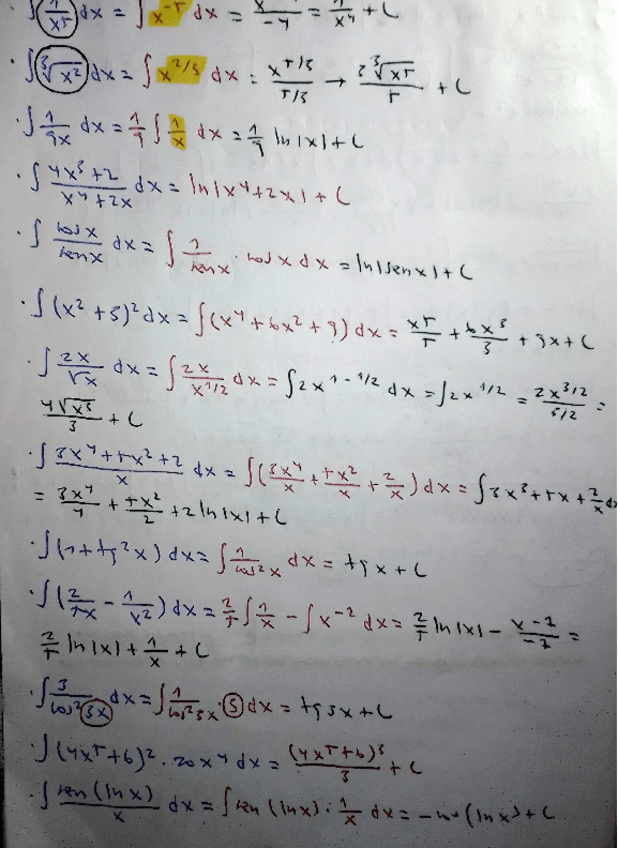 ∫ 1/x⁵ dx = ∫ x⁻⁵ dx = x/-4 = 1/x⁴ + C
· ∫ ∛x² dx = ∫ x^(2/3) dx = x^(5/3)/(5/3) → 3∛x⁵/5 + C
· ∫ 1/9x dx = 1/9 ∫ 1/x dx = 1/9 ln|x| + C
· ∫ (4x³+2)/(x⁴+2x) dx = ln|x⁴+2x| + C
· ∫ cos x/sen x dx = ∫ 1/sen x · cos x dx = ln|sen x| + C
· ∫ (x²+3)² dx = ∫ (x⁴+6x²+9) dx = x⁵/5 + 6x³/3 + 9x + C
· ∫ 2x/√x dx = ∫ 2x/x^(1/2) dx = ∫ 2x^(1-1/2) dx = ∫ 2x^(1/2) = 2x^(3/2)/(3/2) =
4√x³/3 + C
· ∫ (3x⁴+5x²+2)/x dx = ∫ (3x⁴/x + 5x²/x + 2/x) dx = ∫ 3x³+5x+2/x dx
= 3x⁴/4 + 5x²/2 + 2 ln|x| + C
· ∫ (1+tg²x) dx = ∫ 1/cos²x dx = tg x + C
· ∫ (2/5x - 1/x²) dx = 2/5 ∫ 1/x - ∫ x⁻² dx = 2/5 ln|x| - x⁻¹/-1 =
2/5 ln|x| + 1/x + C
· ∫ 3/cos²3x dx = ∫ 1/cos²3x · 3 dx = tg 3x + C
· ∫ (4x⁵+6)² · 20x⁴ dx = (4x⁵+6)³/3 + C
· ∫ sen(ln x)/x dx = ∫ sen(ln x) · 1/x dx = -cos(ln x) + C